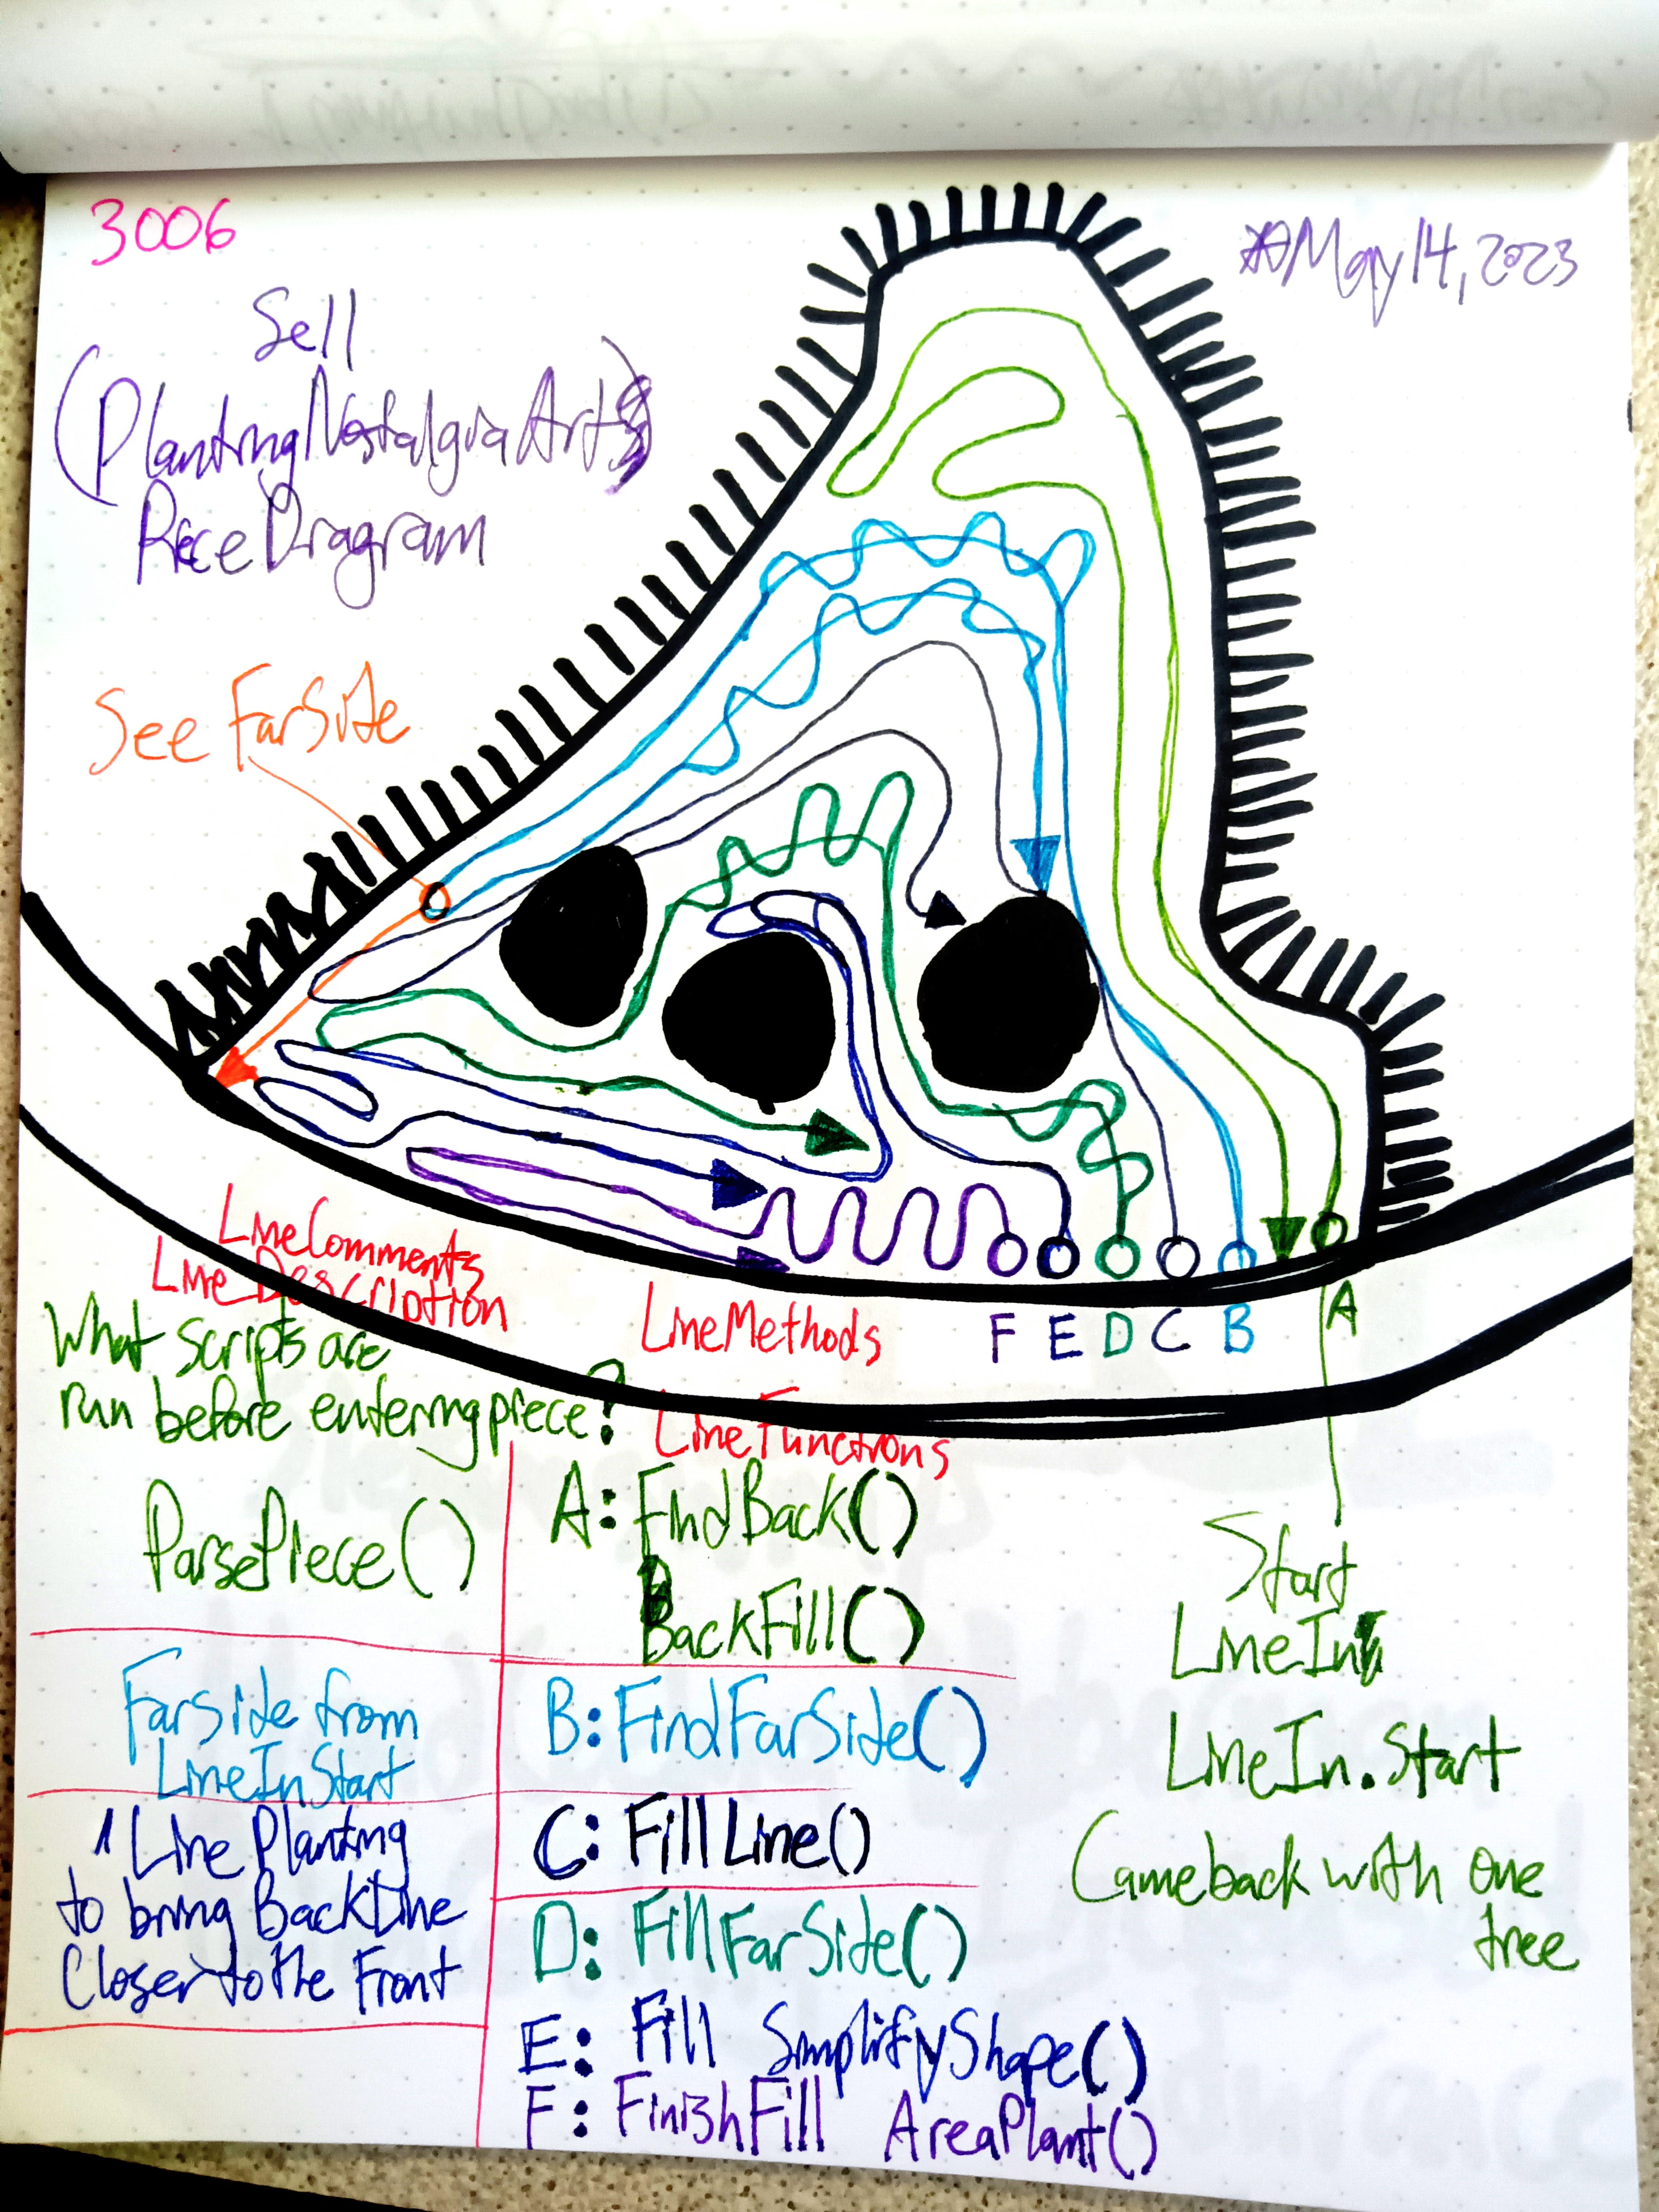 3006
May 14, 2023
Sell
(PlantingNostalgiaArt)
PieceDiagram
See FarSide
LineComments
LineDescription
What scripts are
run before enteringpiece?
ParsePiece()
Farside from
LineInStart
1 Line Planting
to bring BackLine
Closer to the Front
LineMethods
LineFunctions
F E D C B A
A: FindBack()
BackFill()
B: FindFarSide()
C: FillLine()
D: FillFarSide()
E: Fill SimplifyShape()
F: FinishFill AreaPlant()
Start
LineIn
LineIn.Start
Cameback with one
tree